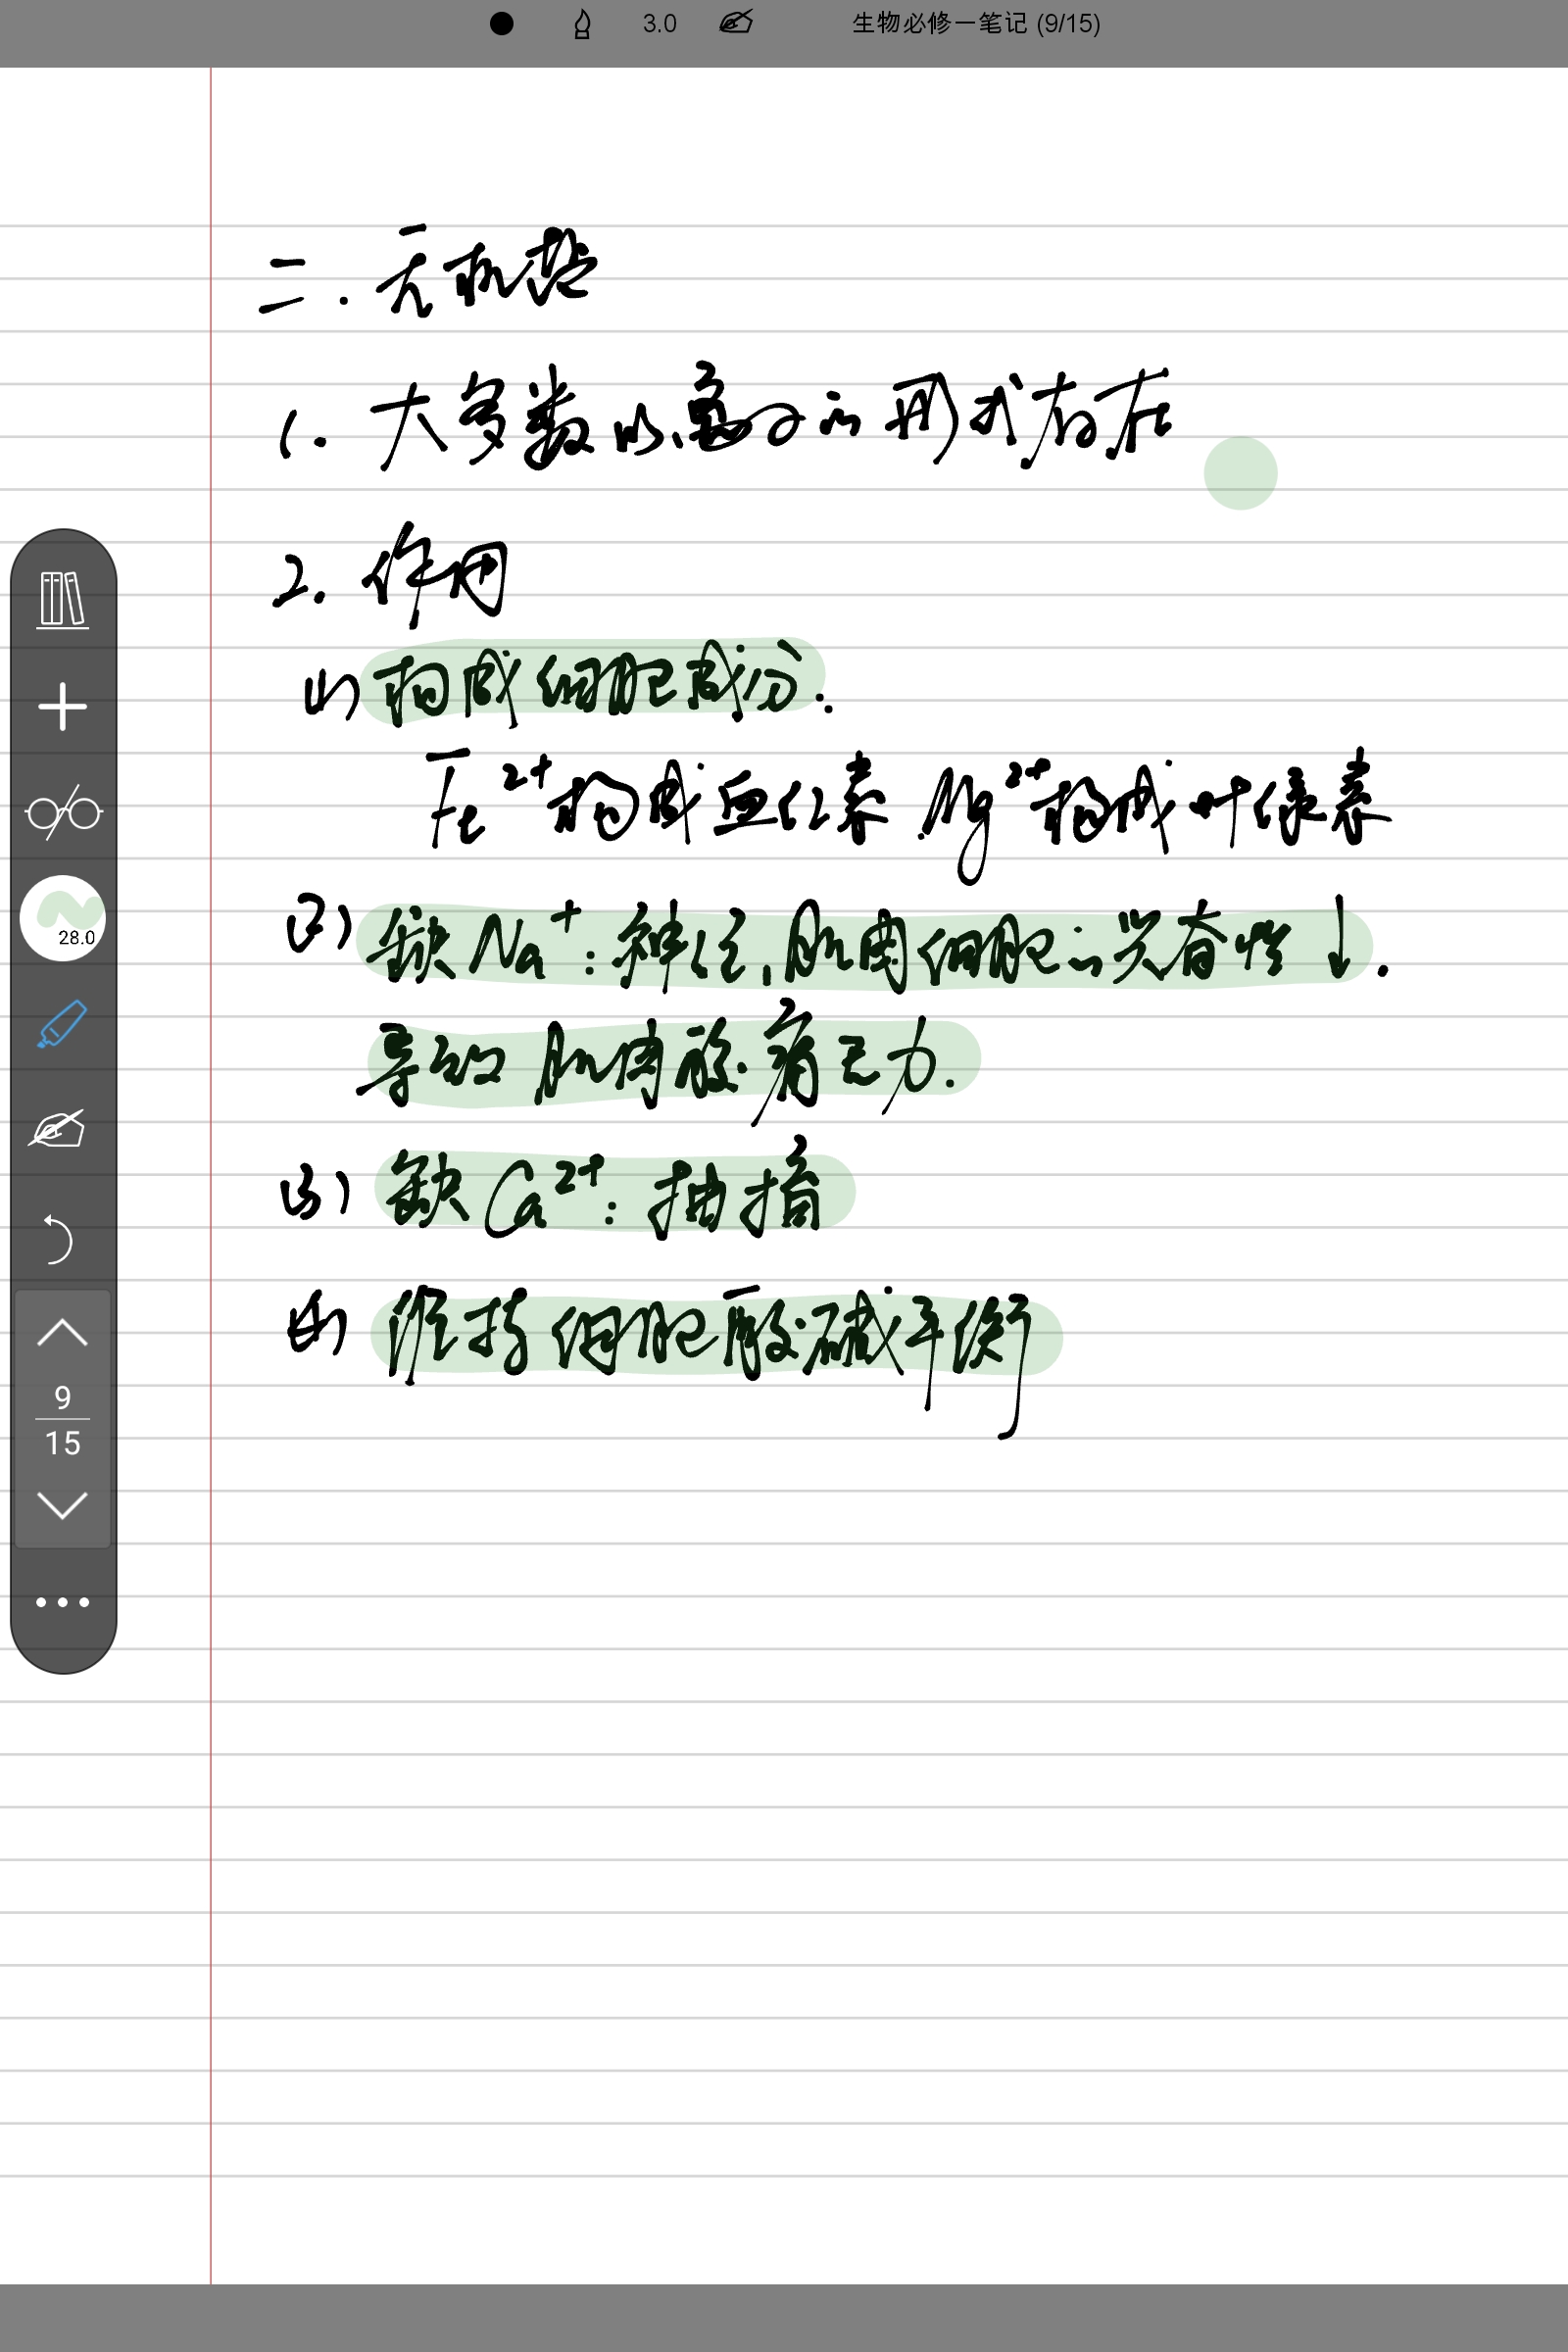 3.0 生物必修一笔记 (9/15)
二.无机盐
1.大多数以离子的形式存在
2.作用
(1)构成细胞成分:
Fe²⁺构成血红素.Mg²⁺构成叶绿素
(2)缺Na⁺:神经、肌肉细胞的兴奋性↓.
导致肌肉酸痛无力.
(3)缺Ca²⁺:抽搐
(4)维持细胞酸碱平衡
28.0
9
15